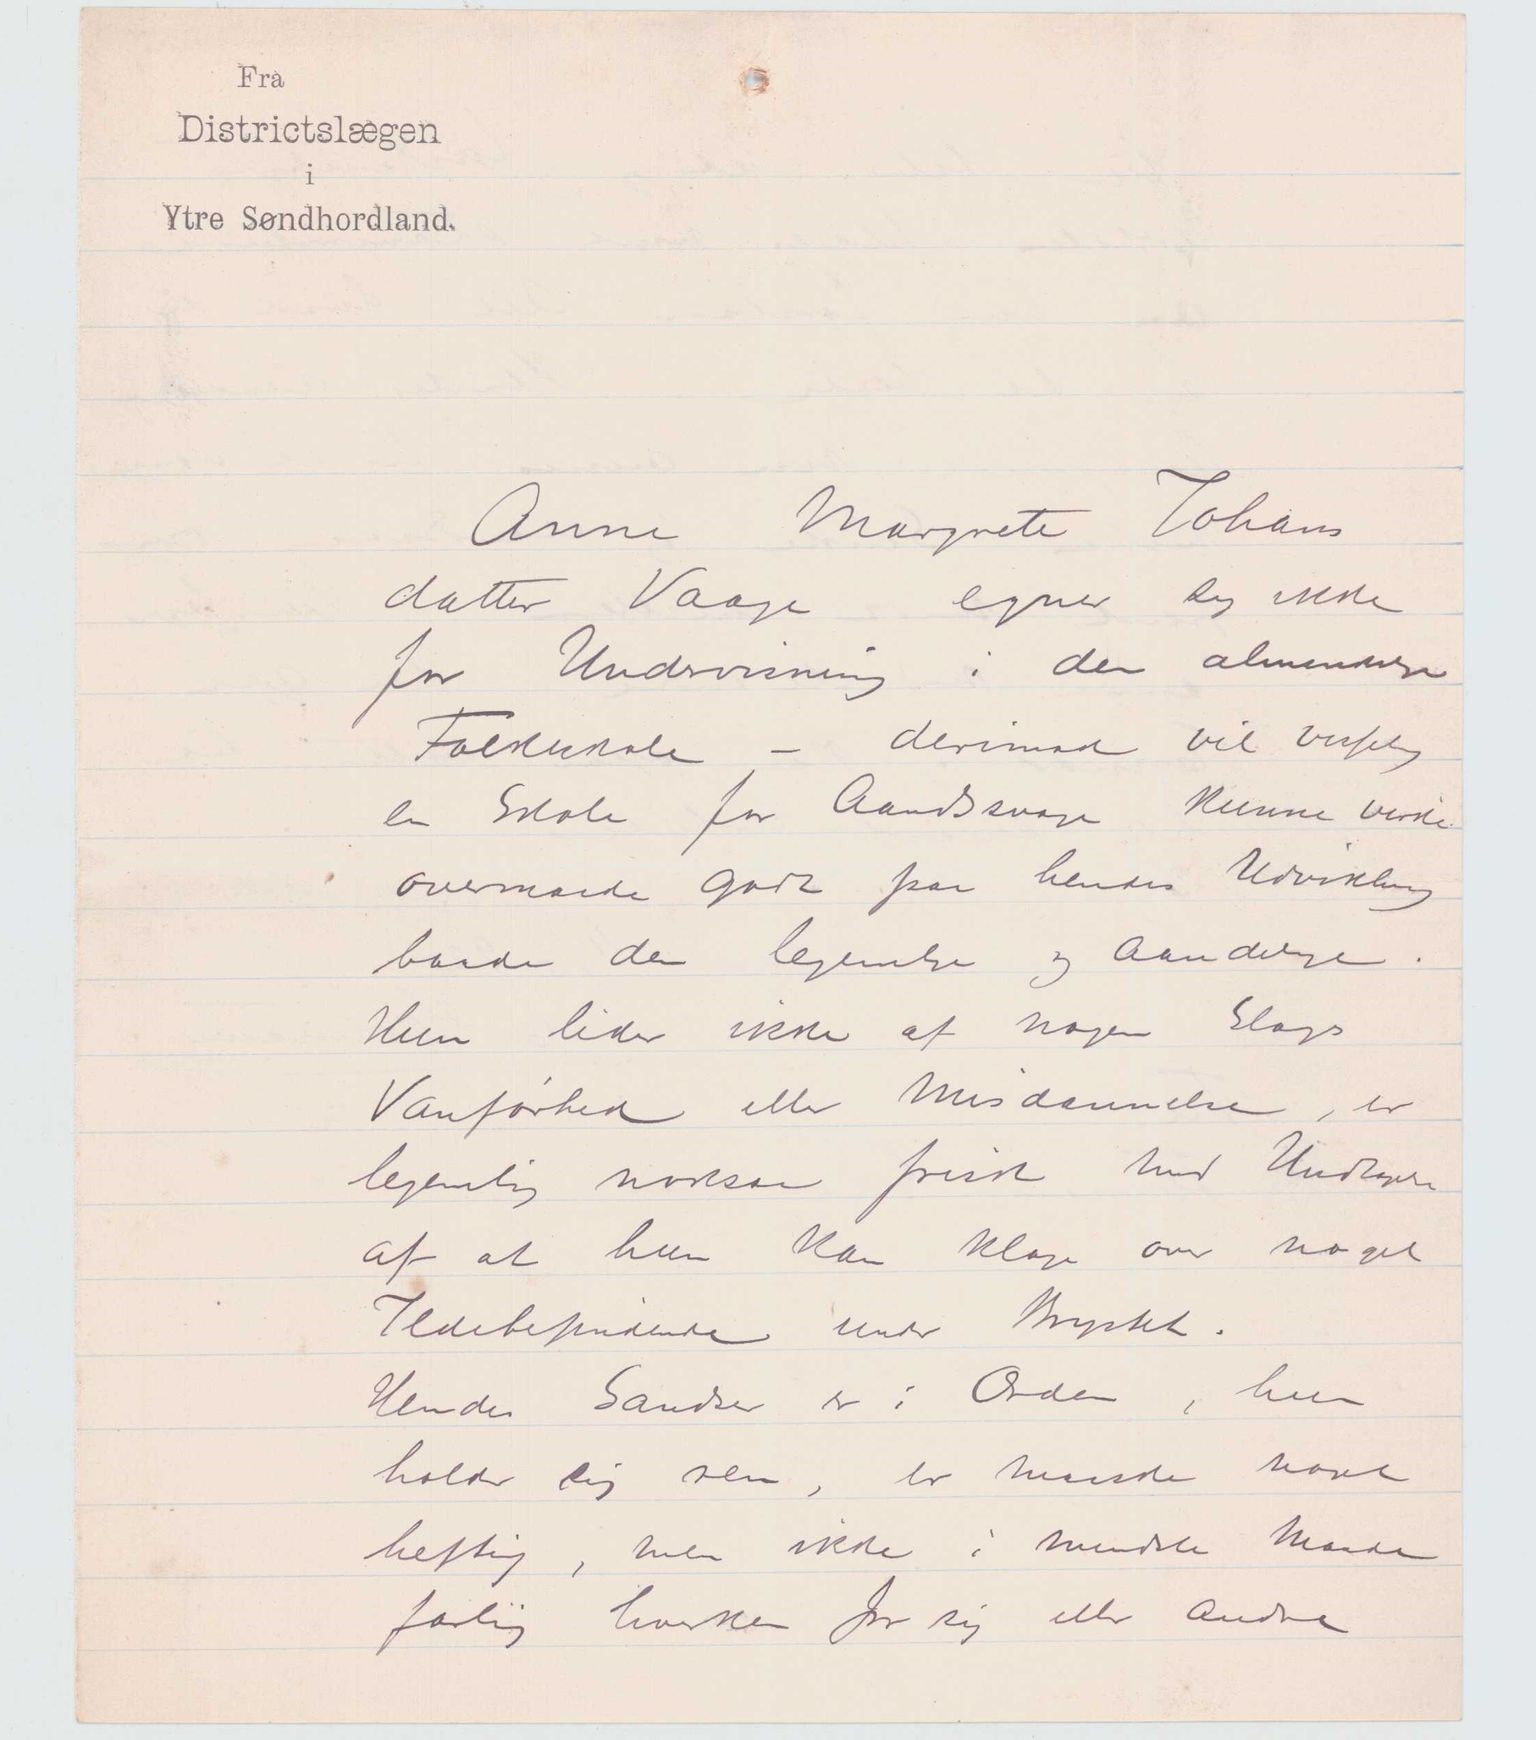 Fra
Districtslægen
i
Ytre Søndhordland.
Anne Margrete Johans
datter Vaage egner sig ikke
for Undervisning i den almindelige
Folkeskole – derimod vil
en Skole for Aandssvage kunne virke
overmaade godt paa hendes Udvikling
baade den legemlige og aandelige.
Hun lider ikke af nogen Slags
Vanførhed eller Misdannelse, er
legemlig noksaa frisk med Undtagelse
af at hun kan klage over noget
Ildebefindende under Brystet.
Hendes Sandser er i Orden, hun
holder sig ren, er maaske noget
heftig, men ikke i mindste Maade
farlig hverken for sig eller andre